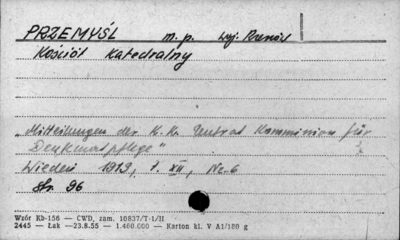 PRZEMYŚL m. p. woj. Rzesz.
Kościół Katedralny
„Mitteilungen der K. K. Zentral Kommission für
Denkmalpflege"
Wiedeń 1913, t. XII, Nr. 6
Str. 96
Wzór Kb-156 — CWD, zam. 10837/T-1/II
2445 — Łak — 23.8.55 — 1.400.000 — Karton kl. V A1/180 g